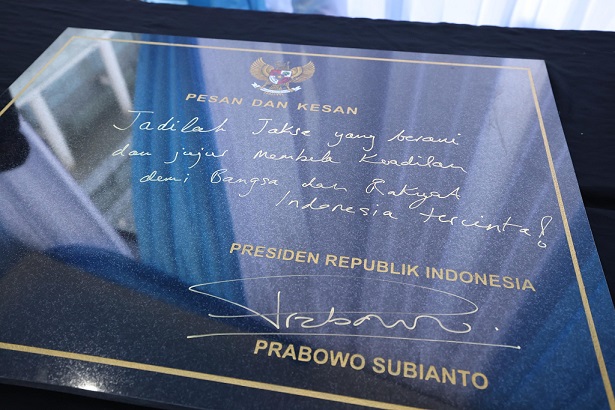 PESAN DAN KESAN
Jadilah Jakse yang berani
dan jujur Membela Keadilan
demi Bangsa dan Rakyat
Indonesia tercinta!
PRESIDEN REPUBLIK INDONESIA
Prabowo.
PRABOWO SUBIANTO